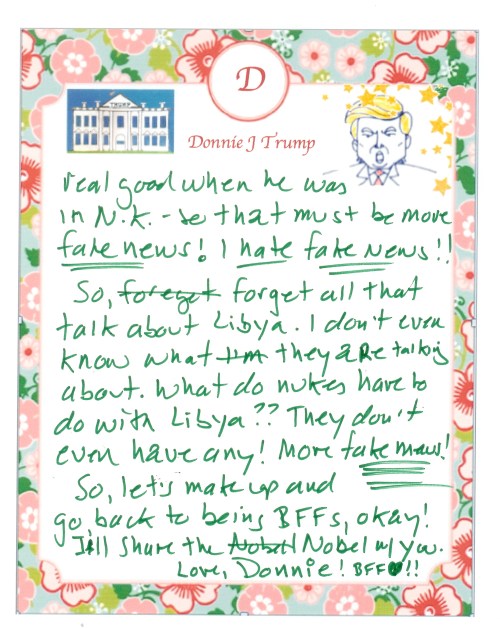 D
Donnie J Trump
real good when he was
in N.K. - so that must be more
fake news! I hate fake news!!
So, foreget forget all that
talk about Libya. I don't even
know what I'm they are talking
about. What do nukes have to
do with Libya?? They don't
even have any! More fake news!
So, let's make up and
go back to being BFFs, okay!
I'll share the Nobel Nobel w/ you.
Love, Donnie! BFF♥!!